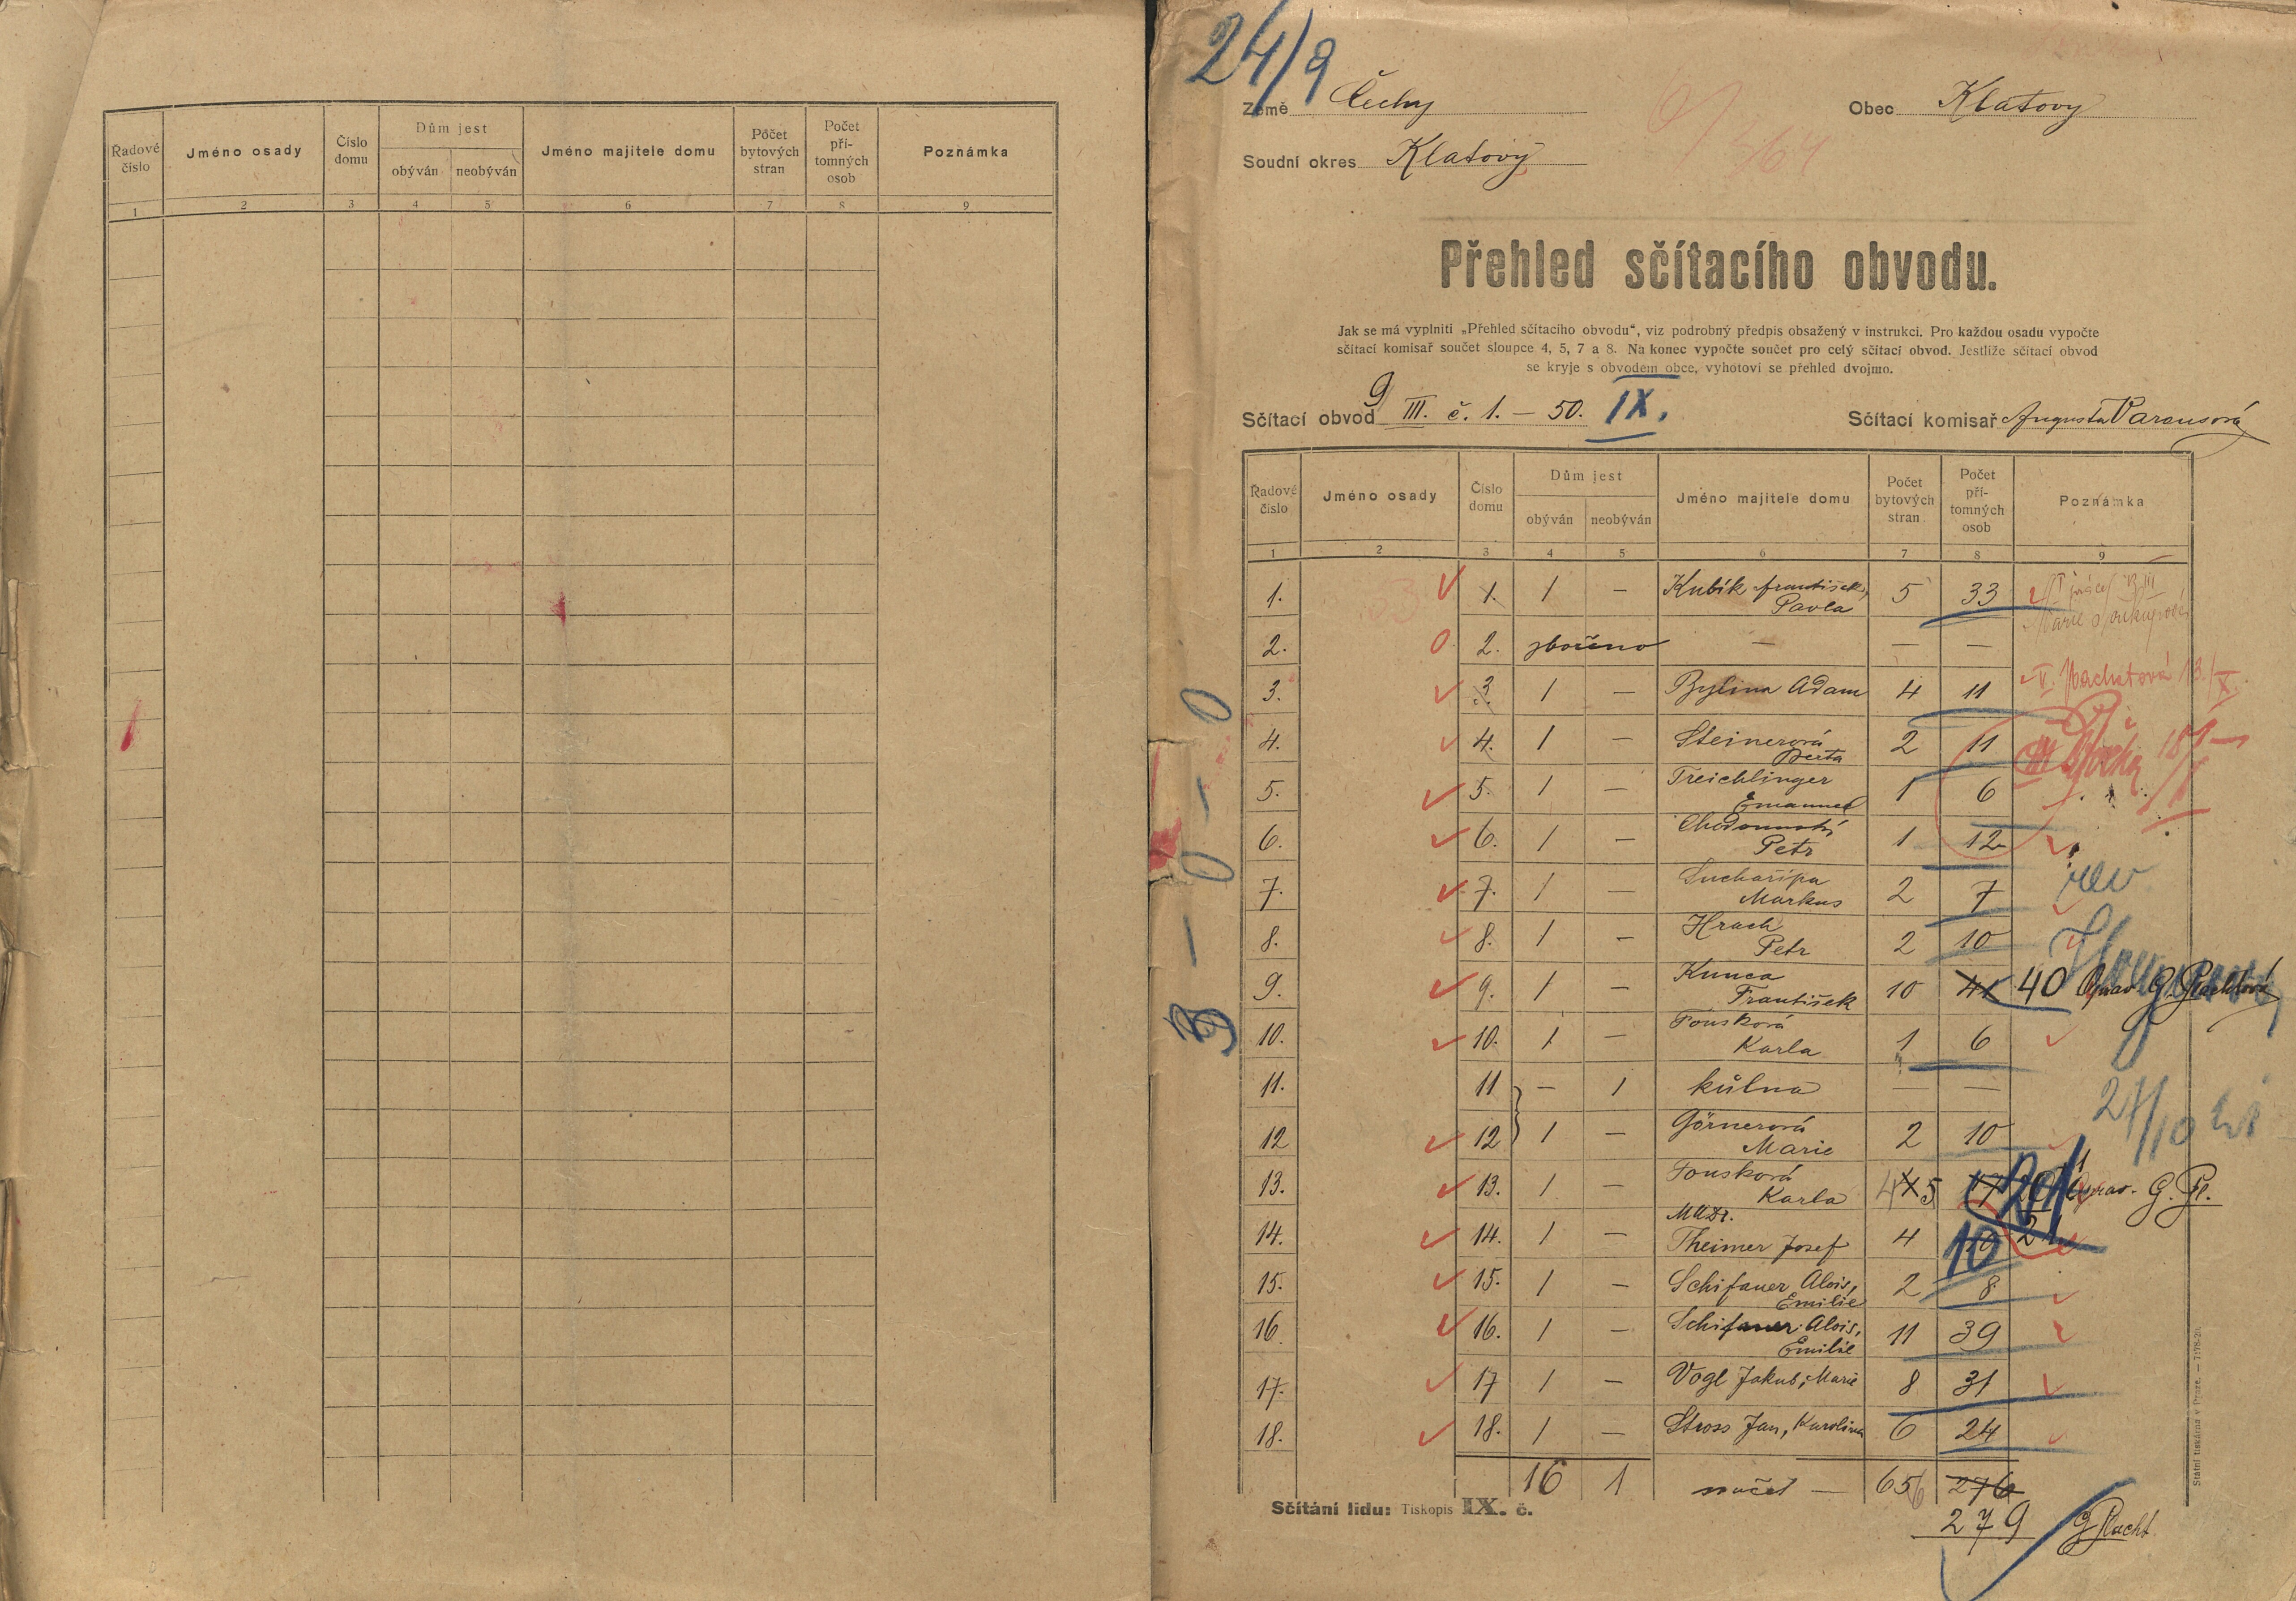 Řadové číslo Jméno osady Číslo domu Dům jest obýván neobýván Jméno majitele domu Počet bytových stran Počet pří- tomných osob Poznámka
1 2 3 4 5 6 7 8 9
24/9
Země Čechy
Obec Klatovy
Soudní okres Klatovy
Přehled sčítacího obvodu.
Jak se má vyplniti „Přehled sčítacího obvodu“, viz podrobný předpis obsažený v instrukci. Pro každou osadu vypočte
sčítací komisař součet sloupce 4, 5, 7 a 8. Na konec vypočte součet pro celý sčítací obvod. Jestliže sčítací obvod
se kryje s obvodem obce, vyhotoví se přehled dvojmo.
Sčítací obvod 9 III. č. 1. – 50. IX.
Sčítací komisař Augusta
Řadové číslo Jméno osady Číslo domu Dům jest obýván neobýván Jméno majitele domu Počet bytových stran Počet pří- tomných osob Poznámka
1 2 3 4 5 6 7 8 9
1. 1. 1 – Kubík František, Pavla 5 33
2. 0 2. zbořeno — — —
3. 3. 1 – Bylina Adam 4 11
4. 4. 1 – Steinerová Berta 2 11
5. 5. 1 – Treichlinger Emanuel 1 6
6. 6. 1 – Petr 1 12
7. 7. 1 – Suchařípa Markus 2 7
8. 8. 1 – Hrach Petr 2 10
9. 9. 1 – Kunca František 10 41 40
10. 10. 1 – Fousková Karla 1 6
11. 11 – 1 kůlna — —
12 12 1 – Görnerová Marie 2 10
27/10
13. 13. 1 – Fousková Karla 4 5 17 G. Pl.
14. 14. 1 – MUDr. Theimer Josef 4 10 21
15. 15. 1 – Schifauer Alois, Emilie 2 8
16. 16. 1 – Schifauer Alois, Emilie 11 39
17. 17 1 – Vogl Jakub, Marie 8 31
18. 18. 1 – Stross Jan, Karolina 6 24
16 1 součet — 65 276
279
Sčítání lidu: Tiskopis IX. č.
3 – 0 – 0
Státní tiskárna v Praze.